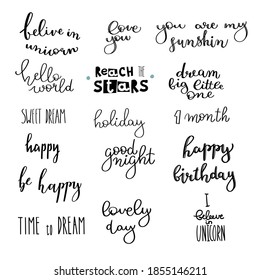 belive in
unicorn
love
you
you are my
sunshin
hello
world
REACH THE
STARS
dream
big little
one
SWEET DREAM
holiday
9 month
happy
good
night
happy
birthday
be happy
TIME to DREAM
lovely
day
I
believe
in
UNICORN
shutterstock.com · 1855146211